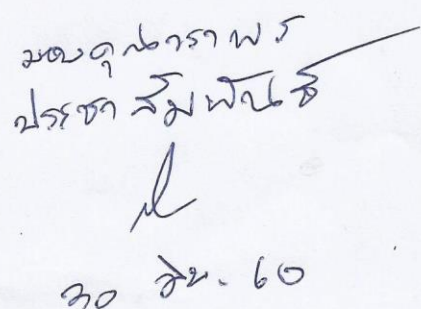 มอบคุณวราพร
ประชาสัมพันธ์
30 มิย. 60